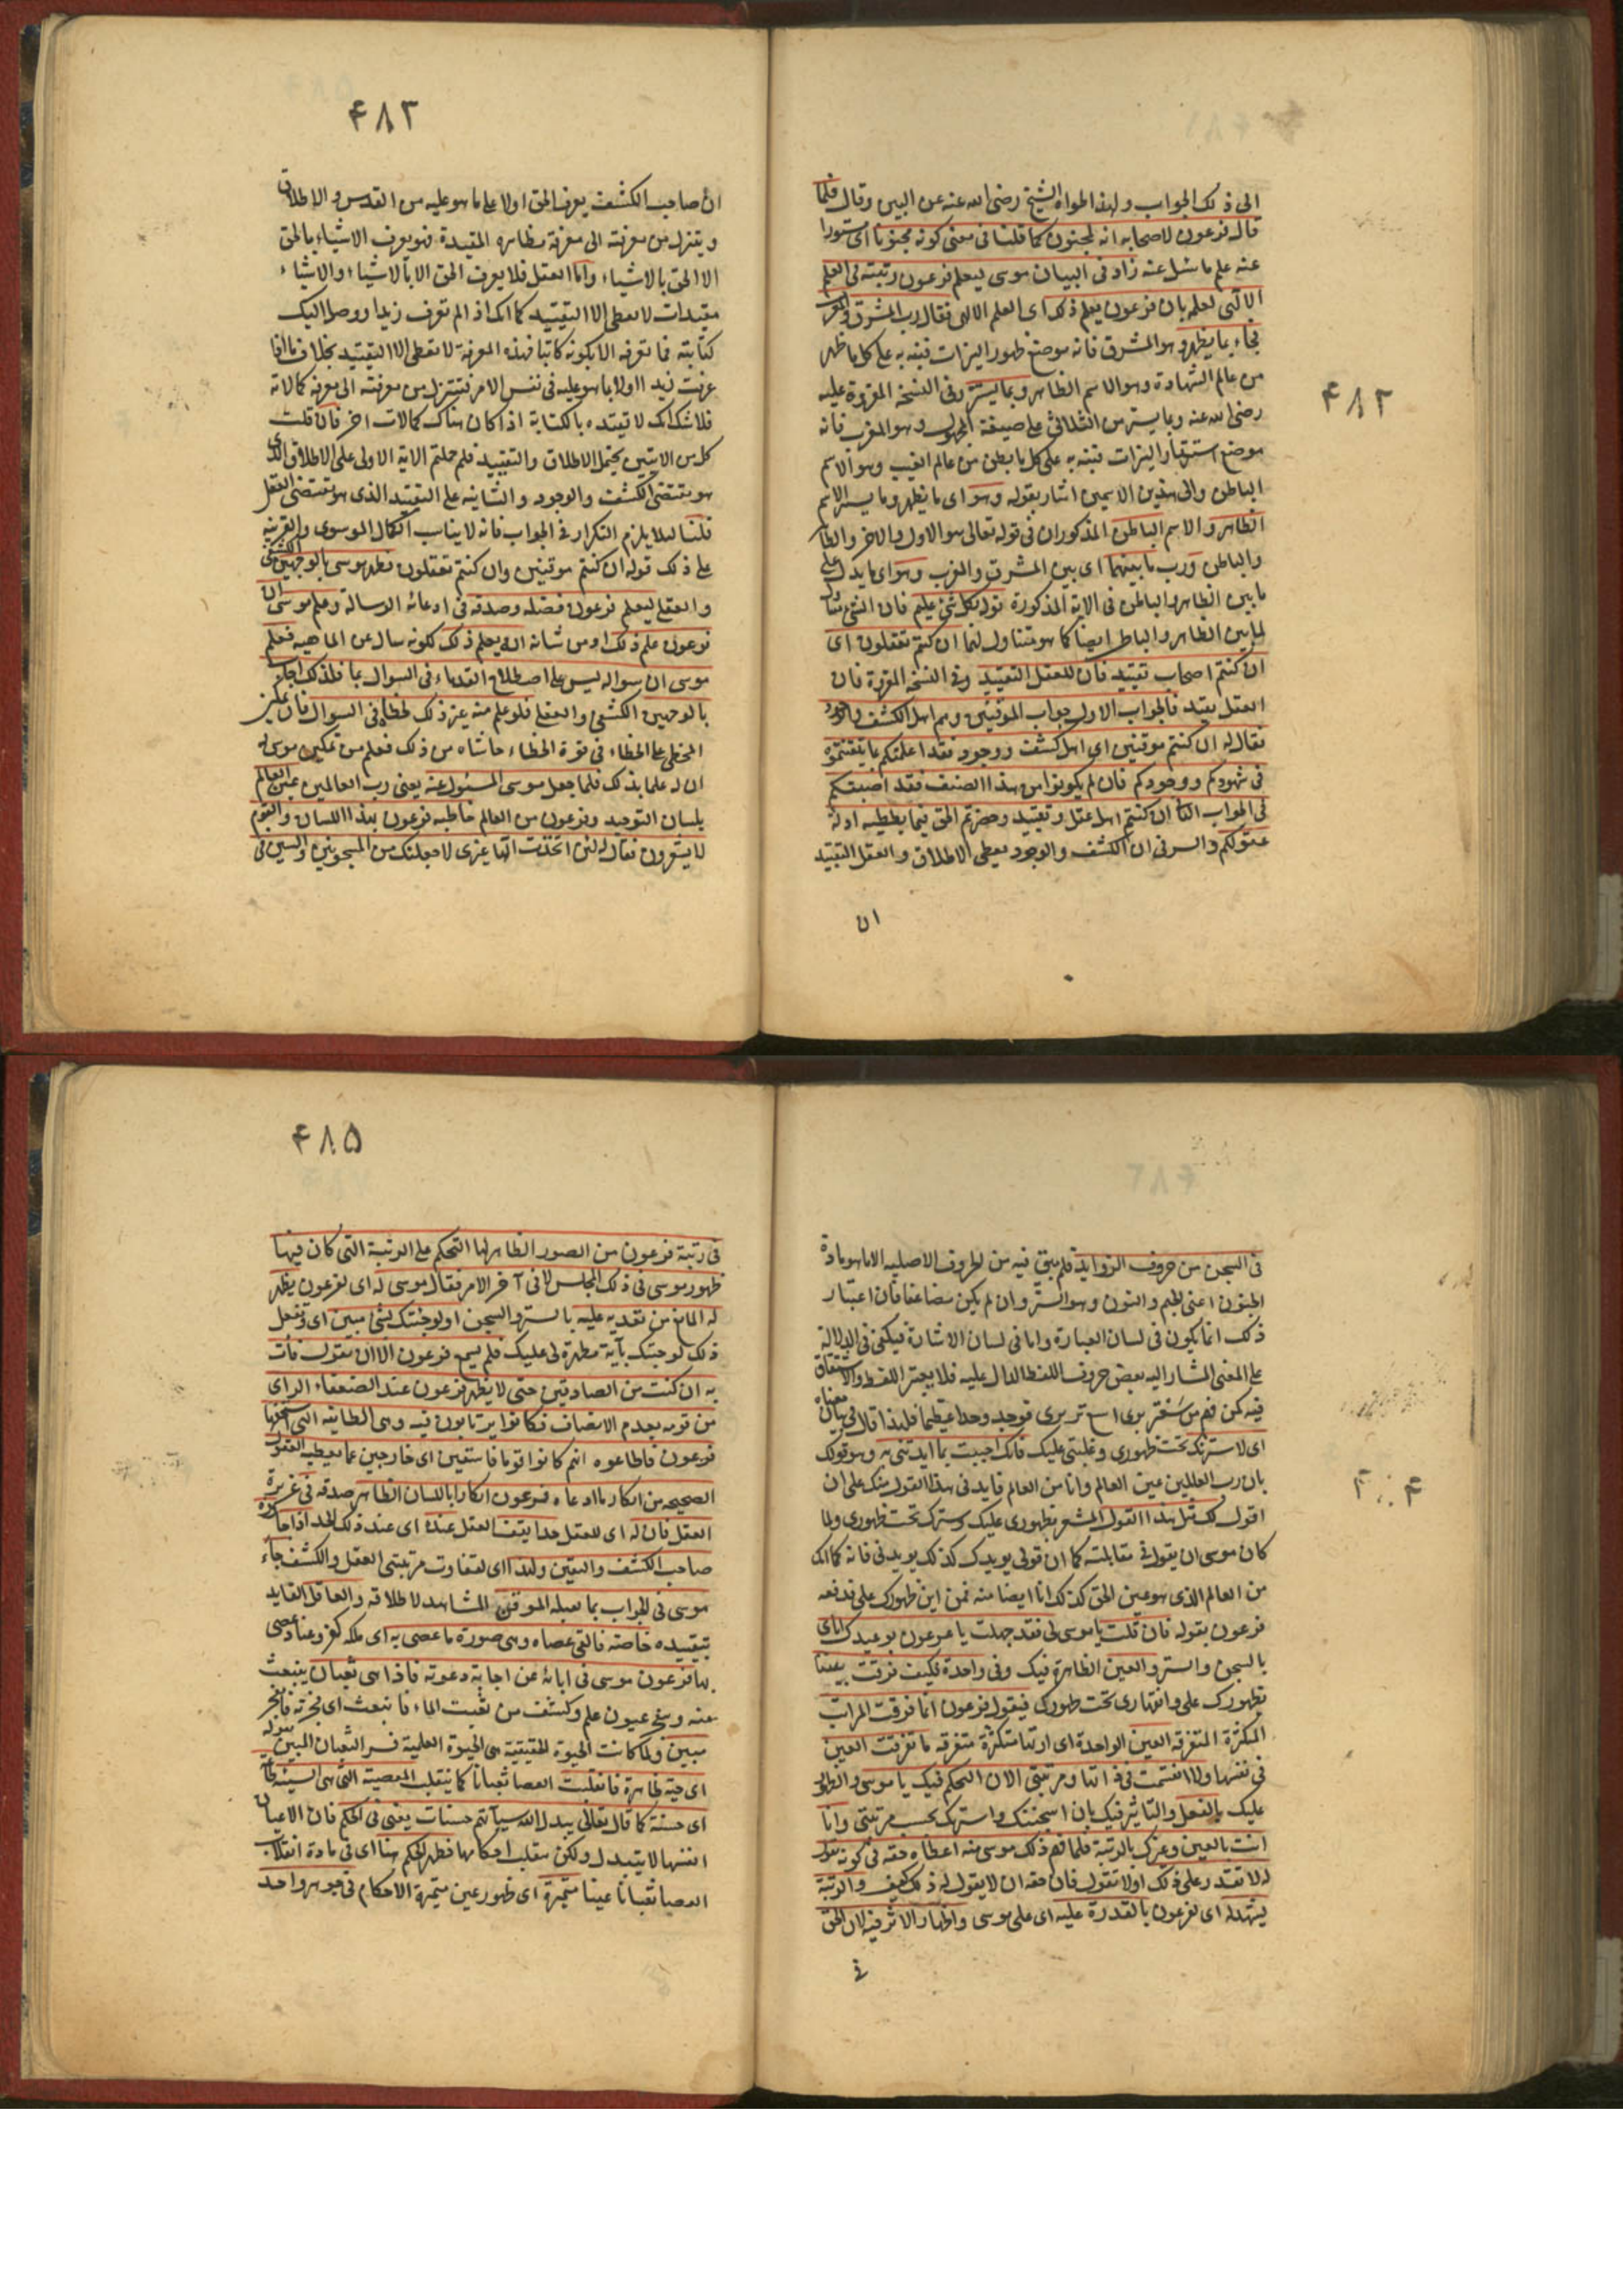 ٤٨٢
الى ذلك الجواب ولهذا لمواه الشيخ رضى الله عنه عن البين وقال فلما
قال فرعون لاصحابه انه لمجنون كما قلنا فى معنى كونه مجنونا اى مستورا
عنه علم ما سئل عنه زاد فى البيان موسى ليعلم فرعون رتبته فى العلم
الالهى لعلمه بان فرعون يعلم ذلك اى العلم الالهى فقال رب المشرق والمغرب
فجاء بما يظهر وهو المشرق فانه موضع ظهور النيرات فنبه به على كل ما ظهر
من عالم الشهادة وهو الاسم الظاهر وبما يستتر وفى النسخة المقروة عليه
رضى الله عنه وبما يستر من الثلاثى على صيغة المجهول وهو المغرب فانه
موضع استتار النيرات فنبه به على كل ما بطن من عالم الغيب وهو الاسم
الباطن والى هذين الاسمين اشار بقوله وهو اى ما يظهر وما يستر الاسم
الظاهر والاسم الباطن المذكوران فى قوله تعالى هو الاول والاخر والظاهر
والباطن ورب ما بينهما اى بين المشرق والمغرب وهو اى ما يدل على
ما بين الظاهر والباطن فى الاية المذكورة قوله بكل شئ عليم فان الشئ شامل
لما بين الظاهر والباطن ايضا كما هو متناول لهما ان كنتم تعقلون اى
ان كنتم اصحاب تقييد فان للعقل التقييد وفى النسخة المقروة فان
العقل يقيد فالجواب الاول جواب الموقنين وهم اهل الكشف والوجود
فقال له ان كنتم موقنين اى اهل كشف ووجود فقد اعلمتكم بما تيقنتموه
فى شهودكم ووجودكم فان لم يكونوا من هذا الصنف فقد اجبتكم
فى الجواب الثانى ان كنتم اهل عقل وتقييد وحصرتم الحق فيما يعطيه ادلة
عقولكم والسر فى ان الكشف والوجود يعطى الاطلاق والعقل التقييد
ان
٤٨٣
ان صاحب الكشف يعرف الحق اولا على ما هو عليه من القدس والاطلاق
ويتنزل من معرفته الى معرفة مظاهره المقيدة فهو يعرف الاشياء بالحق
لا الحق بالاشياء واما العقل فلا يعرف الحق الا بالاشياء والاشياء
مقيدات لا تعطى الا التقييد كما انك اذا لم تعرف زيدا ووصل اليك
كتابته فما تعرفه الا بكونه كاتبا فهذه المعرفة لا تعطى الا التقييد بخلاف ما اذا
عرفت زيدا اولا بما هو عليه فى نفس الامر فتتنزل من معرفته الى معرفة كمالاته
فلا شك انك لا تقيده بالكتابة اذا كان هناك كمالات اخر فان قلت
كل من الايتين يحتمل الاطلاق والتقييد فلم حملتم الاية الاولى على الاطلاق الذى
هو مقتضى الكشف والوجود والثانيه على التقييد الذى هو مقتضى العقل
قلنا لئلا يلزم التكرار فى الجواب فانه لا يناسب الكمال الموسوى والقرينة
على ذلك قوله ان كنتم موقنين وان كنتم تعقلون فظهر موسى بالوجهين الكشفى
والعقلى ليعلم فرعون فضله وصدقه فى ادعائه الرسالة وعلم موسى ان
فرعون علم ذلك او من شانه ان يعلم ذلك لكونه سال عن الماهيه فعلم
موسى ان سواله ليس على اصطلاح القدماء فى السوال بما فلذلك اجاب
بالوجهين الكشفى والعقلى فلو علم منه غير ذلك لخطاه فى السوال فان تمكين
المخطى على الخطاء فى قوة الخطاء حاشاه من ذلك فعلم من تمكين موسى له
ان له علما بذلك فلما جعل موسى المسئول عنه يعنى رب العالمين عين العالم
بلسان التوحيد وفرعون من العالم خاطبه فرعون بهذا اللسان والقوم
لا يشعرون فقال له لئن اتخذت الها غيرى لاجعلنك من المسجونين والسين فى
٤ ٤
فى السجن من حروف الزوايد فلم يبق فيه من الحروف الاصليه الا ما هو مادة
الجنون اعنى الجيم والنون وهو الستر وان لم يكن مضاعفا فان اعتبار
ذلك انما يكون فى لسان العبارة واما فى لسان الاشارة فيكفى فى الدلالة
على المعنى المشار اليه بعض حروف اللفظ الدال عليه فلا يعتبر اللفظ والاشتقاق
فيه كمن فهم من سعتر برى اسع تر برى فوجد وجدا عظيما فلهذا قال فى بيان معناه
اى لاسترنك تحت ظهورى وغلبتى عليك فانك اجبت بما ايدتنى به وهو قولك
بان رب العالمين عين العالم وانا من العالم فايدنى هذا القول منك على ان
اقول لك مثل هذا القول المشعر بظهورى عليك وسترك تحت ظهورى ولما
كان موسى ان يقول فى مقابلته كما ان قولى يويدك كذلك يويدنى فانه كما انك
من العالم الذى هو عين الحق كذلك انا ايضا منه فمن اين ظهورك على فدفعه
فرعون بقوله فان قلت يا موسى لى فقد جهلت يا فرعون بوعيدك اياى
بالسجن والستر والعين الظاهرة فيك وفى واحدة فكيف فرقت بيننا
بظهورك على وانقهارى تحت ظهورك فيقول فرعون انما فرقت المراتب
المتكثرة المتفرقة العين الواحدة اى ارتها متكثرة متفرقة ما تفرقت العين
فى نفسها ولا انقسمت فى ذاتها ومرتبتى الان التحكم فيك يا موسى والظهور
عليك بالفعل والتاثير فيك بان اسجنك واسترك بحسب مرتبتى وانا
انت بالعين وغيرك بالرتبة فلما فهم ذلك موسى منه اعطاه حقه فى كونه يقول
له لا تقدر على ذلك اولا تقول فان حقه ان لا يقول له ذلك كيف والرتبة
يشهد له اى لفرعون بالقدرة عليه اى على موسى واظهار الاثر فيه لان الحق
فى
٤٨٥
فى رتبة فرعون من الصور الظاهر لها التحكم على الرتبة التى كان فيها
ظهور موسى فى ذلك المجلس لا فى آخر الامر فقال موسى له اى لفرعون يظهر
له المانع من تعديه عليه بالستر والسجن اولو جئتك بشئ مبين اى وتفعل
ذلك لو جئتك بآية مظهرة لى عليك فلم يسع فرعون الا ان يقول فأت
به ان كنت من الصادقين حتى لا يظهر فرعون عند الضعفاء الراى
من قومه بعدم الانصاف فكانوا يرتابون فيه وهى الطايفة التى استخفها
فرعون فاطاعوه انهم كانوا قوما فاسقين اى خارجين عما يعطيه العقول
الصحيحة من انكار ما ادعاه فرعون انكارا باللسان الظاهر صدقه فى غريزة
العقل فان له اى للعقل حدا يقف العقل عنده اى عند ذلك الحد اذا جاوزه
صاحب الكشف واليقين ولهذا اى لتفاوت مرتبتى العقل والكشف جاء
موسى فى الجواب بما يقبله الموقن المشاهد لاطلاقه والعاقل القايد
بتقييده خاصة فالقى عصاه وهى صورة ما عصى به اى ملكه كفر وعناد عصى
بها فرعون موسى فى ابائه عن اجابة دعوته فاذا هى ثعبان ينبعث
عنه وينفجر عيون علم وكشف من ثعبت الماء فانبعث اى فجرته فانفجر
مبين ولما كانت الحيوة الحقيقية هى الحيوة العلمية فسر الثعبان المبين بقوله
اى حية ظاهرة فانقلبت العصا ثعبانا كما ينقلب المعصية التى هى السيئة طاعة
اى حسنة كما قال تعالى يبدل الله سيآتهم حسنات يعنى فى الحكم فان الاعيان
انفسها لا يتبدل ولكن ينقلب احكامها فظهر الحكم هنا اى فى مادة انقلاب
العصا ثعبانا عينا متميزة اى ظهور عين متميزة الاحكام فى جوهر واحد